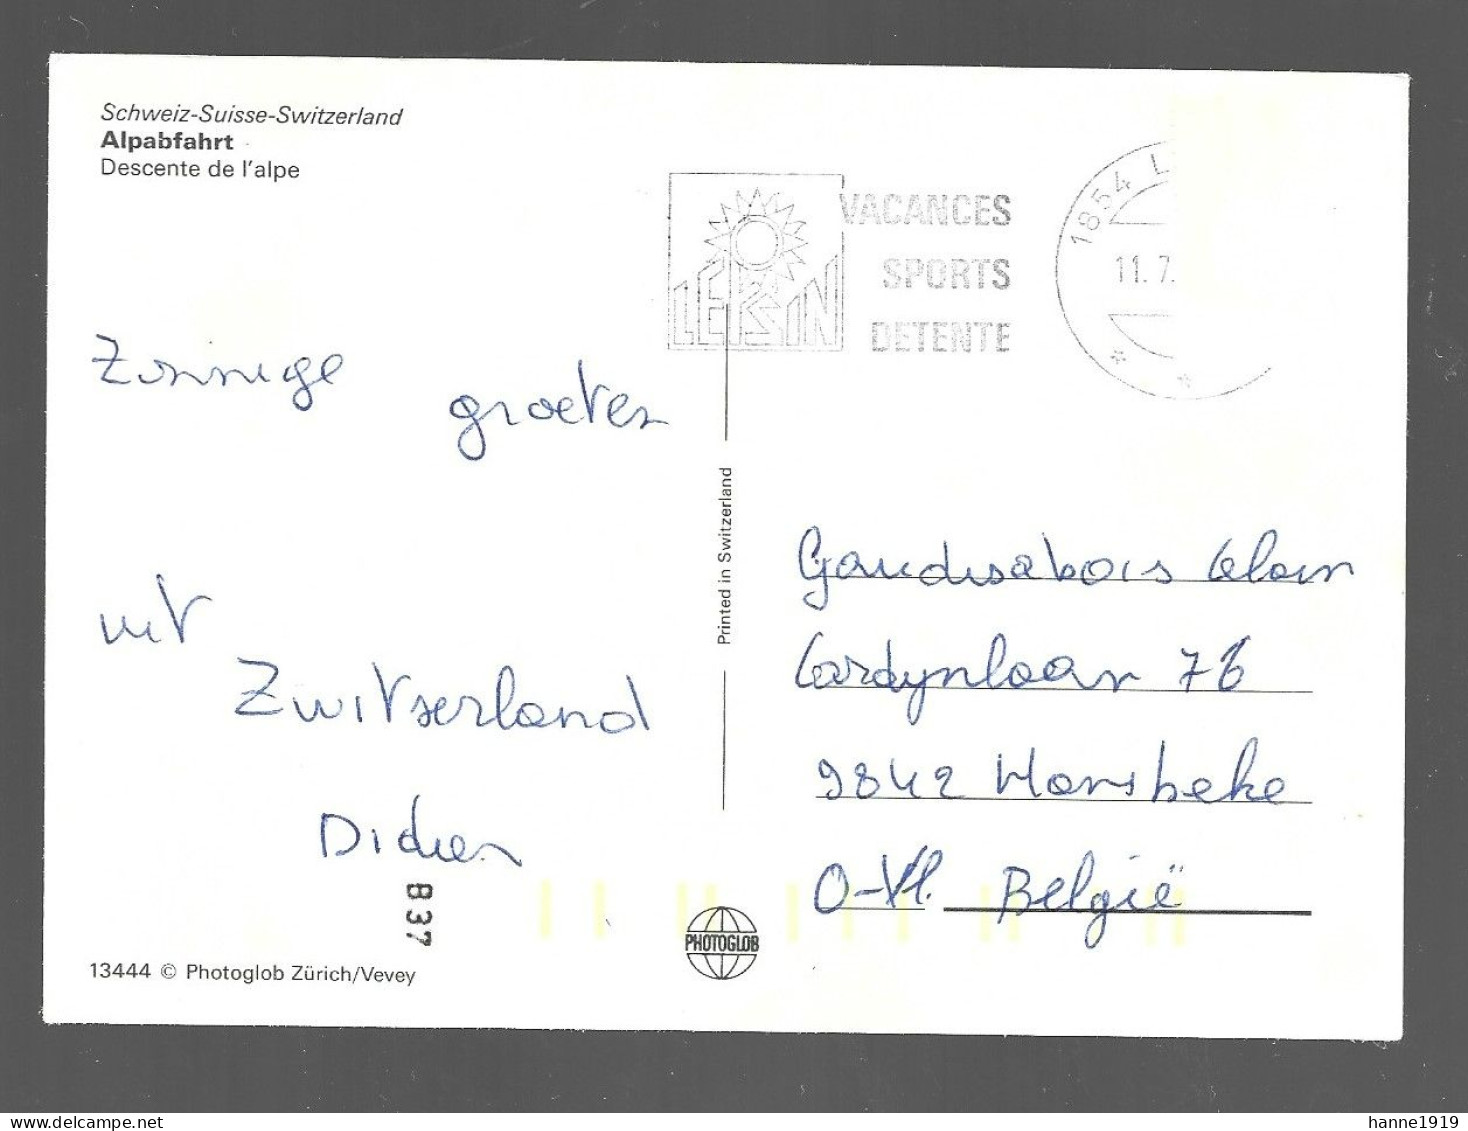 Schweiz-Suisse-Switzerland
Alpabfahrt
Descente de l'alpe
LEYSIN
VACANCES
SPORTS
DETENTE
1854 L
11.7.
Zonnige
groeten
uit
Zwitserland
Didier
Printed in Switzerland
Cardynlaan 76
9842
O-Vl. België
B37
PHOTOGLOB
13444 © Photoglob Zürich/Vevey
hanne1919